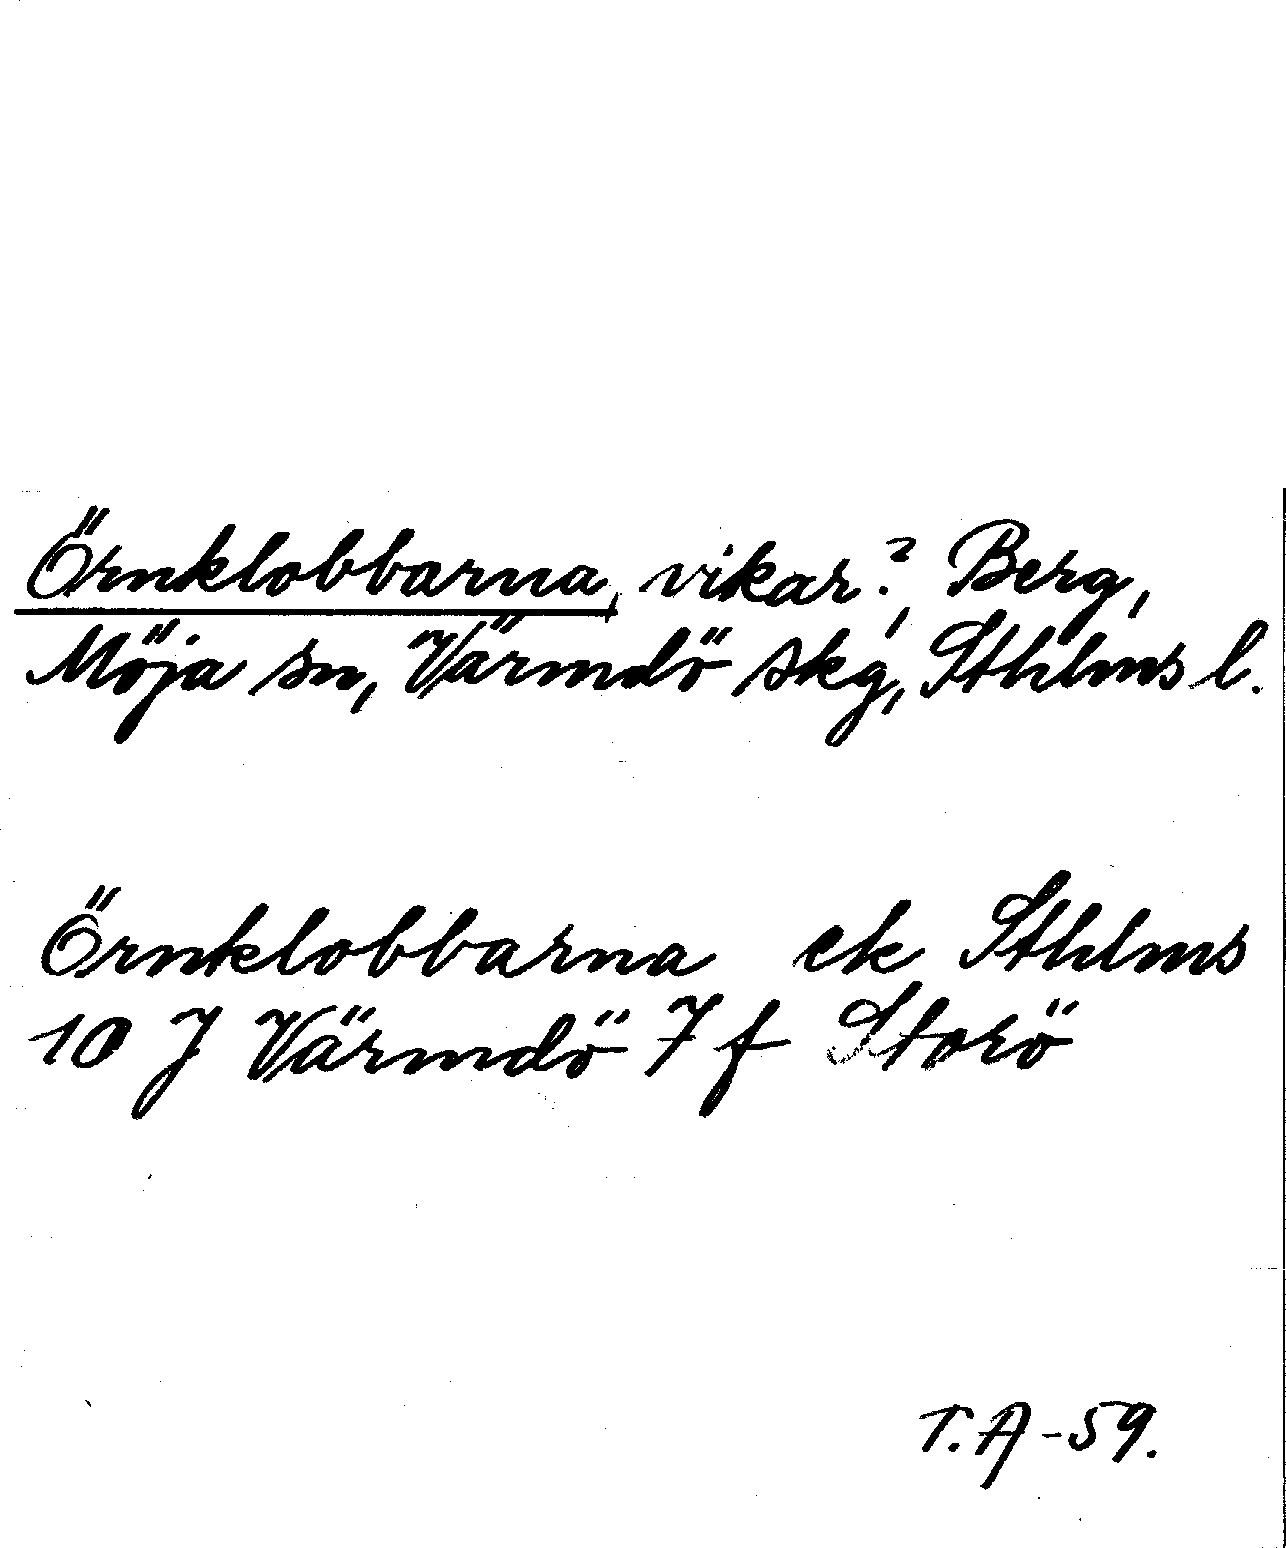 Örnklobbarna, vikar?, Berg,
Möja sn, Värmdö skg, Sthlms l.
Örnklobbarna ek Sthlms
10 J Värmdö 7 f Storö
T.A-59.